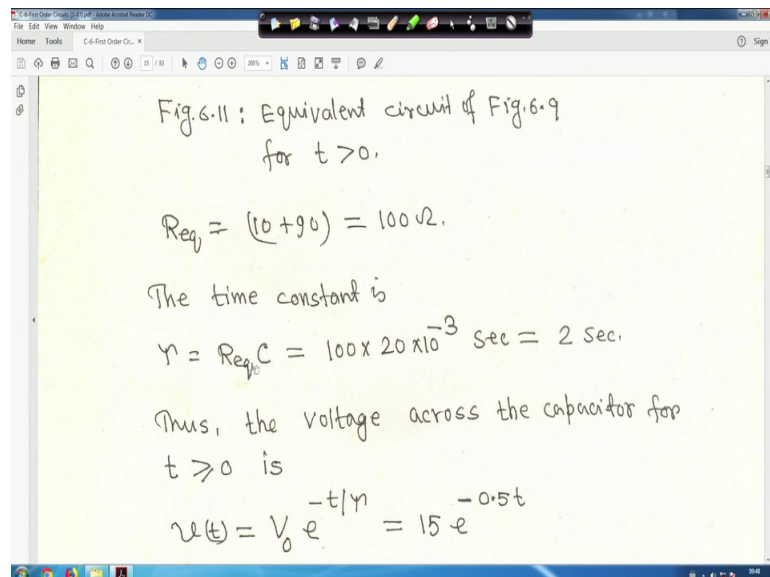 C-6-First Order Circuits [1-83].pdf - Adobe Acrobat Reader DC
File Edit View Window Help
Home Tools C-6-First Order Cir... × Sign
15 / 83 200%
Fig.6.11 : Equivalent circuit of Fig.6.9
for t >0.
Req = (10 +90) = 100 Ω.
The time constant is
τ = Req C = 100 x 20 x10⁻³ sec = 2 sec.
Thus, the voltage across the capacitor for
t ⩾ 0 is
v(t) = V₀ e^(-t/τ) = 15 e^(-0.5t)
09:48